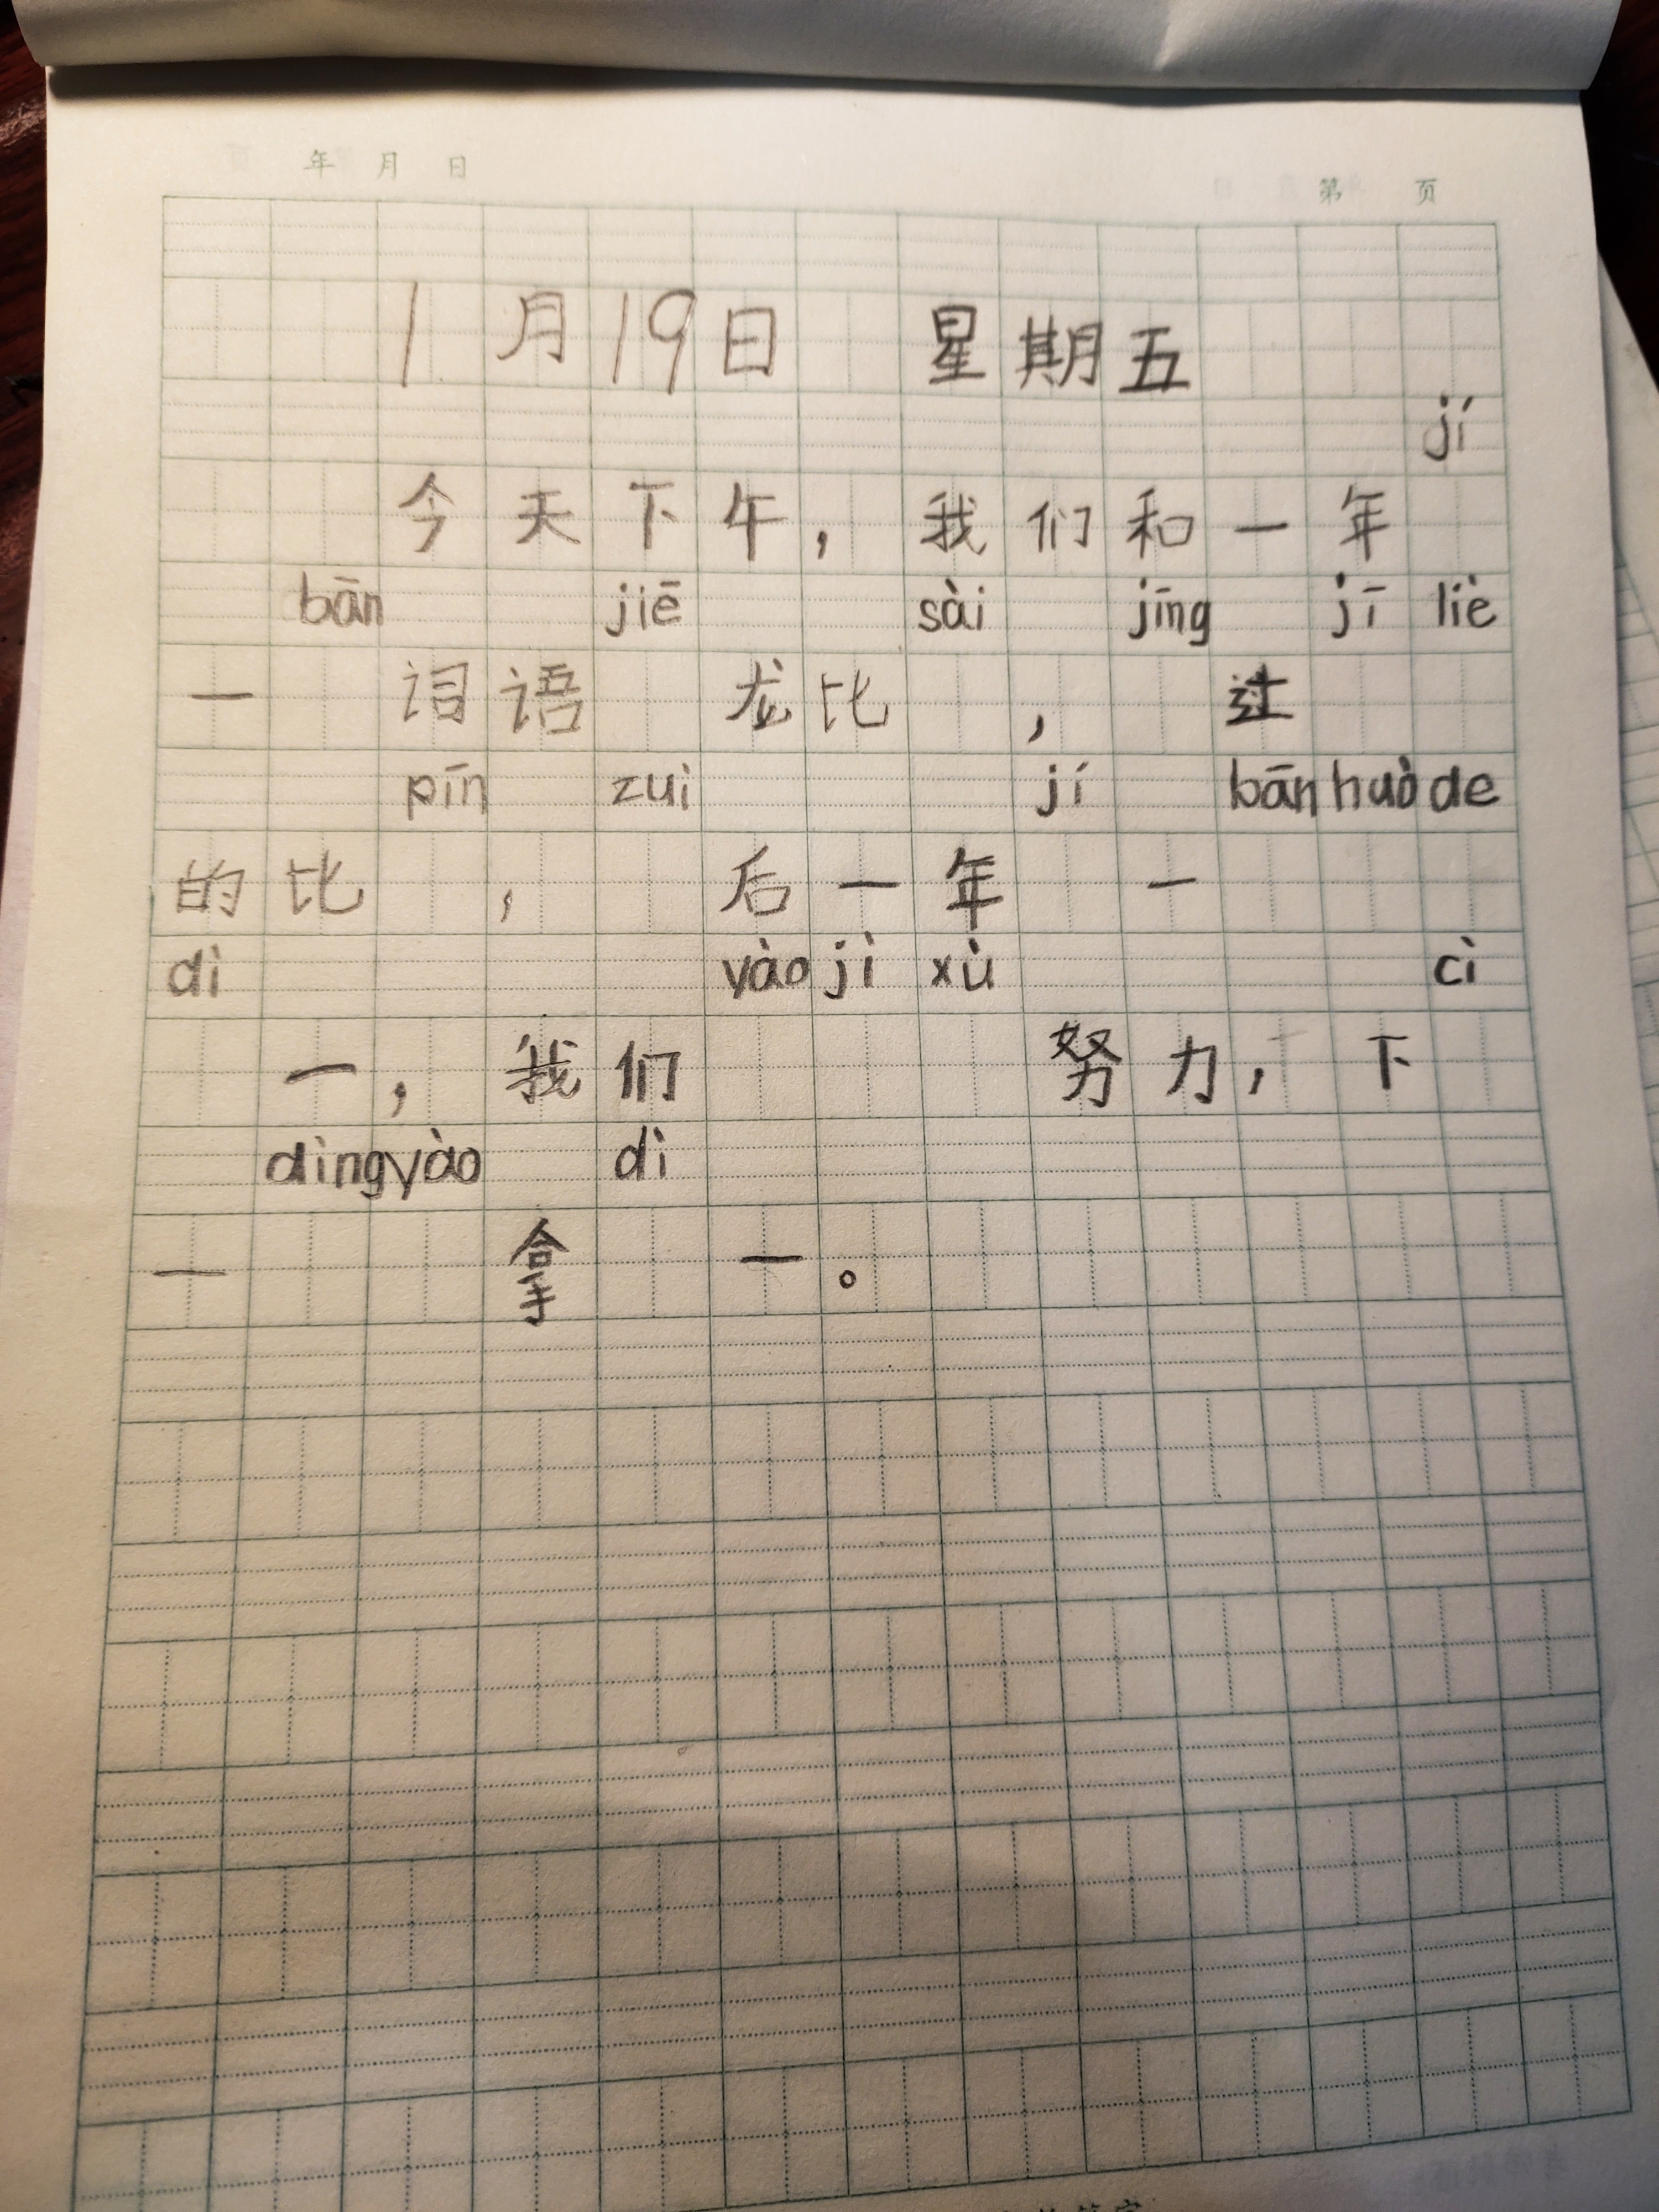 年 月 日
第 页
1月19日 星期五
jí
今天下午，我们和一年
bān jiē sài jīng jī liè
一 词语 龙比 ， 过
pīn zuì jí bān huò de
的比 ， 后一年 一
dì yào jì xù cì
一，我们 努力，下
dìng yào dì
一 拿 一。